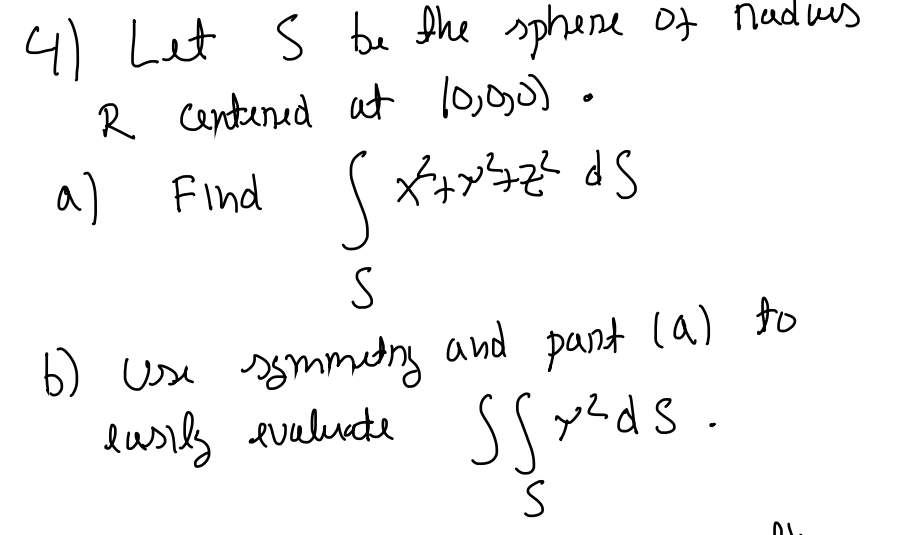 4) Let S be the sphere of radius
R centered at (0,0,0).
a) Find ∫ x²+y²+z² dS
S
b) Use symmetry and part (a) to
easily evaluate ∫∫ y² dS.
S